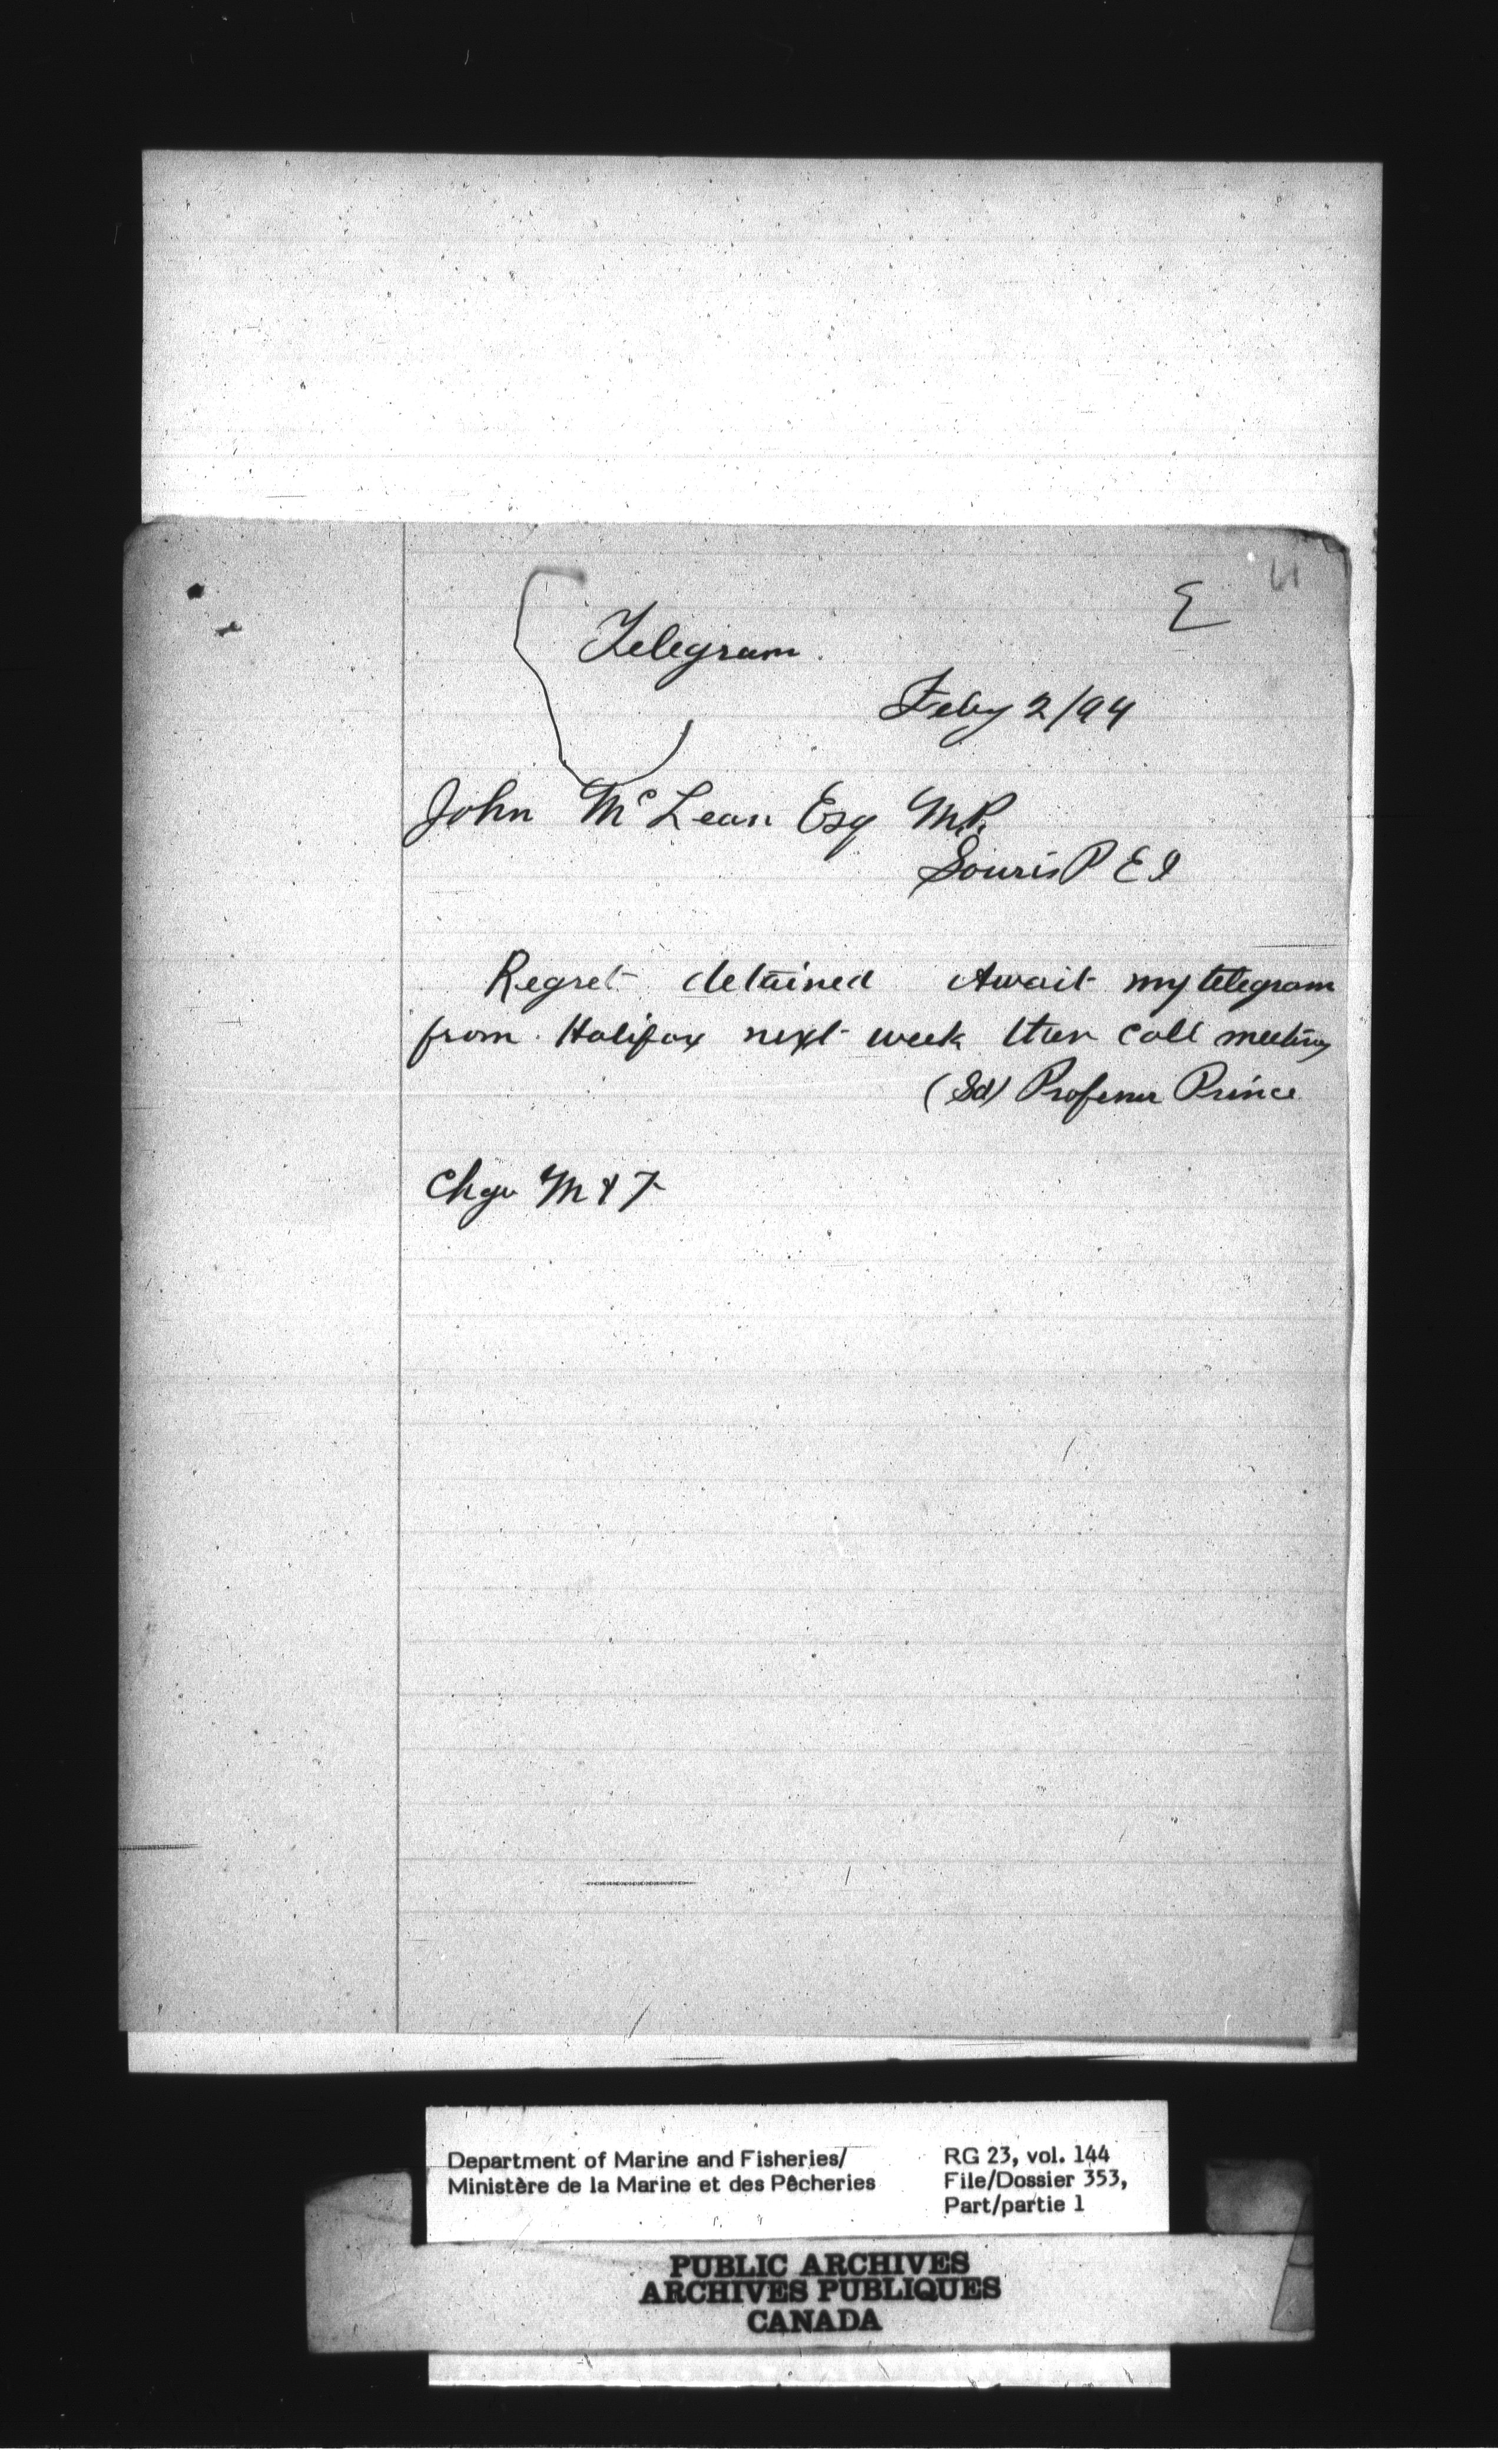 61
E
Telegram.
Feby 2/94
John McLean Esq M.P.
Souris P E I
Regret detained Await my telegram
from Halifax next week then call meeting
(Sd) Professor Prince
Chge M & F
Department of Marine and Fisheries/
Ministère de la Marine et des Pêcheries
RG 23, vol. 144
File/Dossier 353,
Part/partie 1
PUBLIC ARCHIVES
ARCHIVES PUBLIQUES
CANADA